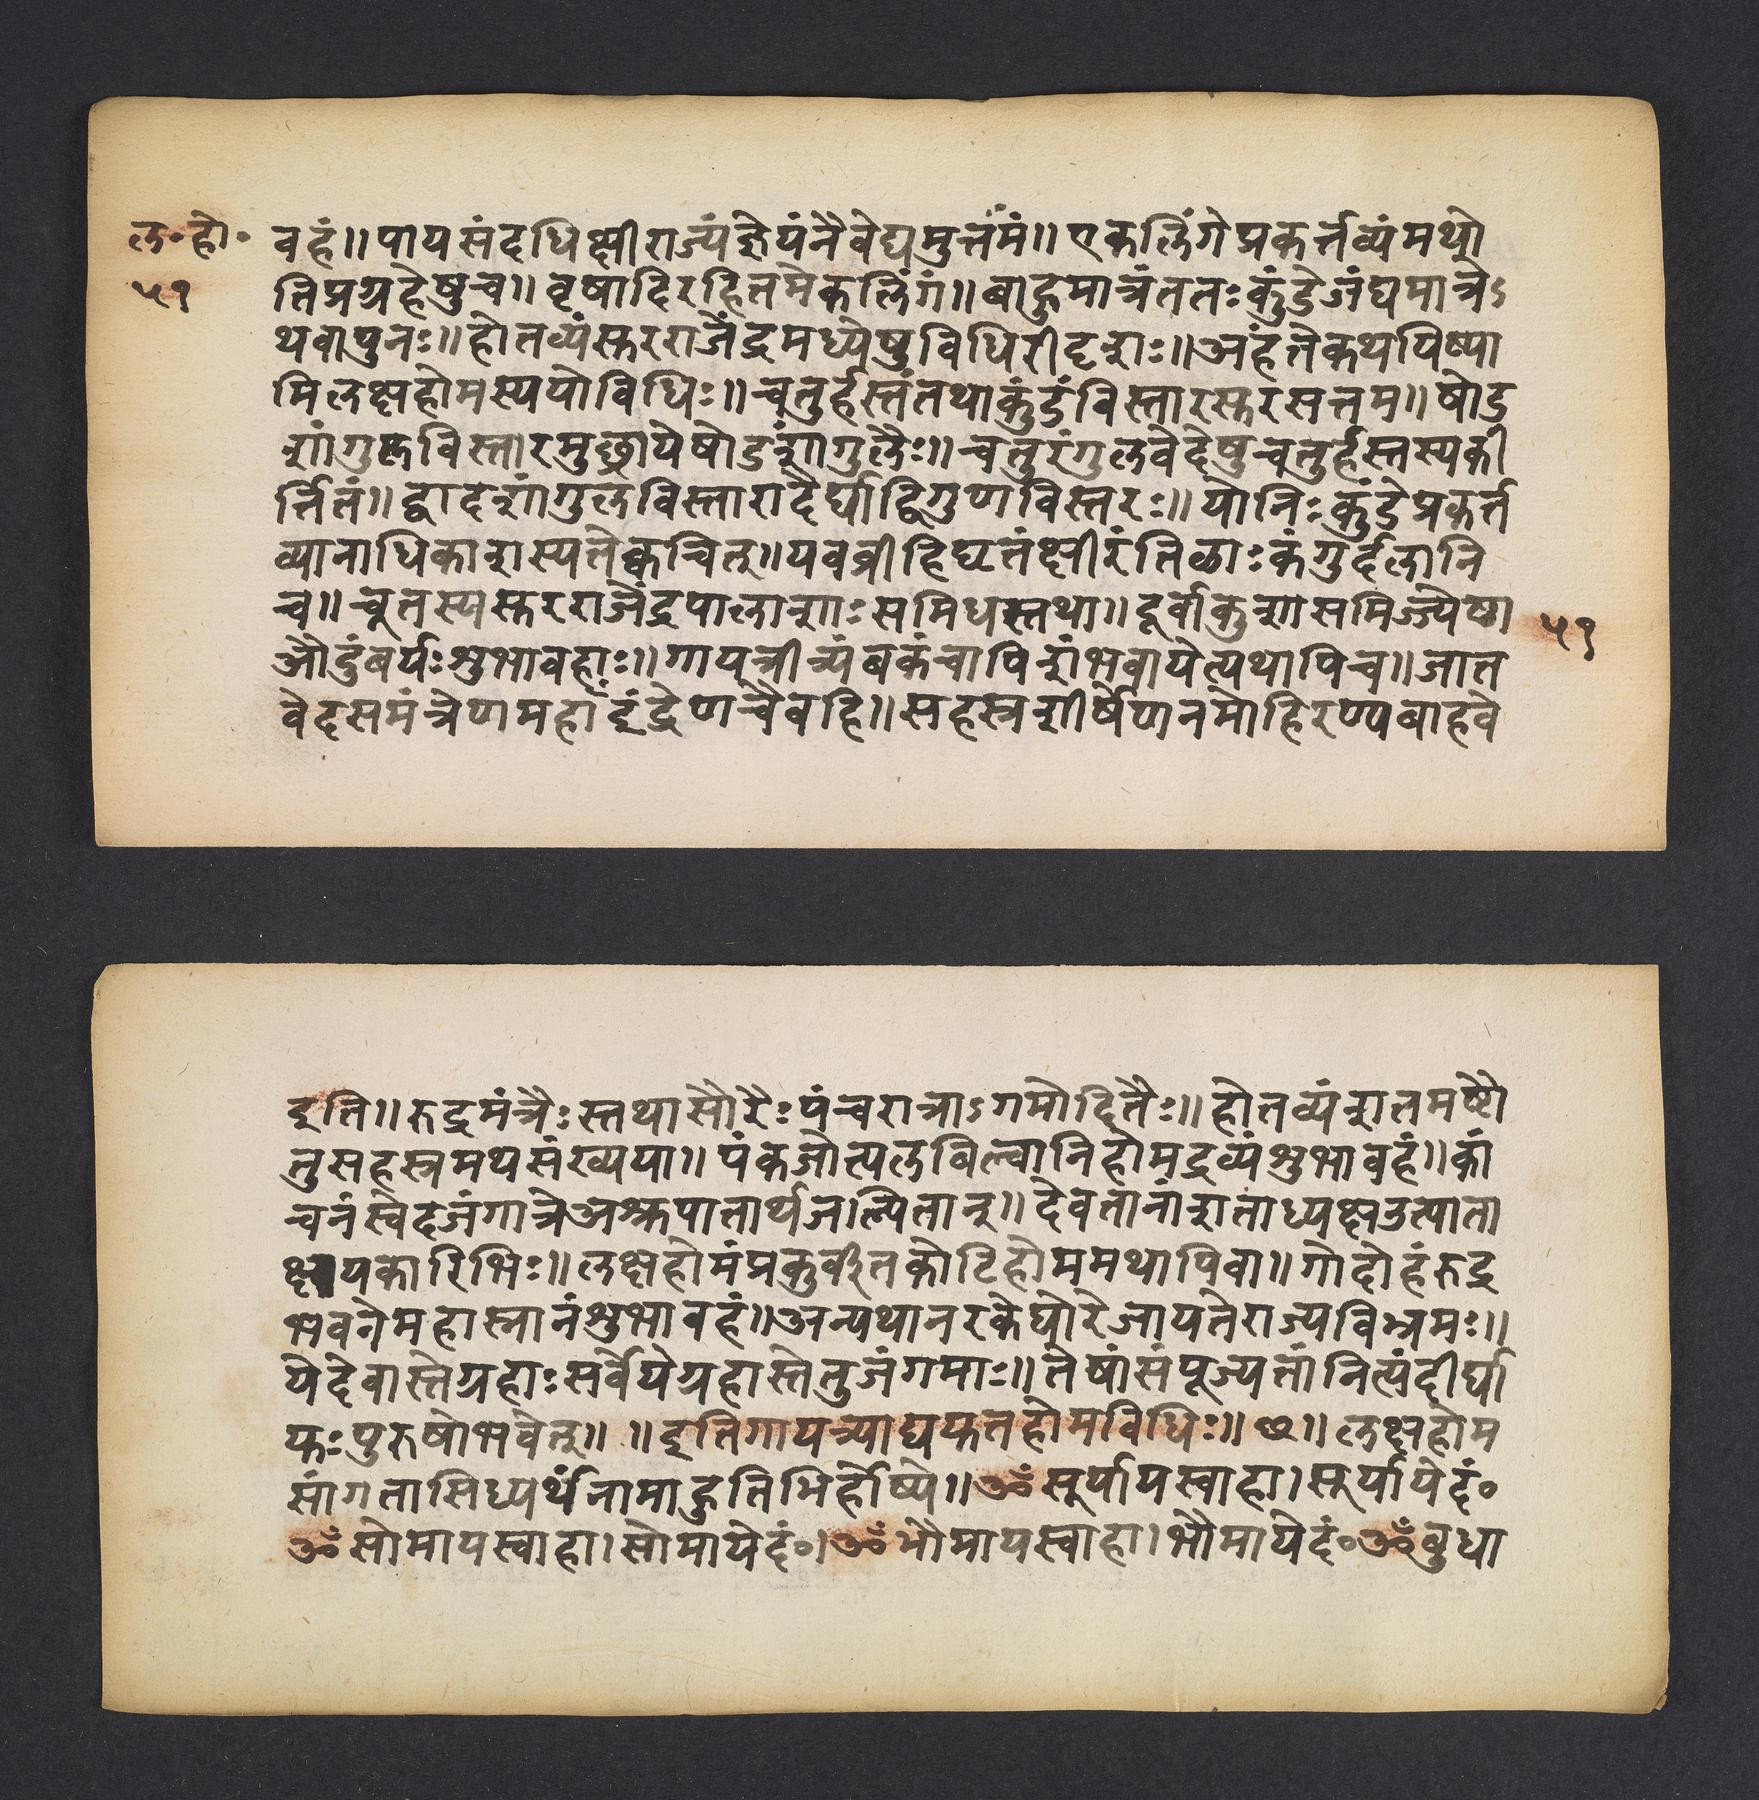 ल॰ हो॰
५१
वहं॥ पायसंदधिक्षीराज्यंज्ञेयंनैवेद्यमुत्तमं॥ एकलिंगेप्रकर्त्तव्यंमथो
तिप्रग्रहेषुच॥ वृषादिरहितमेकलिंगं॥ बाहुमात्रंततःकुंडेजंघमात्रेऽ
थवापुनः॥ होतव्यंसुरराजेंद्रमध्येषुविधिरीदृशः॥ अहंतेकथयिष्या
मिलक्षहोमस्ययोविधिः॥ चतुर्हस्तंतथाकुंडंविस्तारसुरसत्तम॥ षोड
शांगुलविस्तारमुछ्रायेषोडशांगुलैः॥ चतुरंगुलवेदेषुचतुर्हस्तस्यकी
र्त्तितं॥ द्वादशांगुलविस्तारादैर्घ्याद्विगुणविस्तरः॥ योनिःकुंडेप्रकर्त्त
व्यानाधिकाशस्यतेक्वचित्॥ यवव्रीहिघृतंक्षीरंतिळाःकंगुर्दलानि
च॥ चूतस्यसुरराजेंद्रपालाशाःसमिधस्तथा॥ दूर्वाकुशासमिज्ज्येष्ठा
औदुंबर्यःशुभावहाः॥ गायत्रीत्र्यंबकंचापिशंभवायेत्यथापिच॥ जात
वेदसमंत्रेणमहाँइंद्रेणचैवहि॥ सहस्रशीर्षेणनमोहिरण्यबाहवे
५१
इति॥ रुद्रमंत्रैःस्तथासौरैःपंचरात्राऽगमोदितैः॥ होतव्यंशतमष्टौ
तुसहस्रमथसंख्यया॥ पंकजोत्पलबिल्वानिहोमद्रव्यंशुभावहं॥ कां
चनंस्वेदजंगात्रेअश्रुपातार्थजल्पितान्॥ देवतानांशताध्यक्षउत्पाता
क्षयकारिभिः॥ लक्षहोमंप्रकुर्वीतकोटिहोममथापिवा॥ गोदोहंरुद्र
भवनेमहास्नानंशुभावहं॥ अन्यथानरकेघोरेजायतेराज्यविभ्रमः॥
येदेवास्तेग्रहाःसर्वेयेग्रहास्तेतुजंगमाः॥ तेषांसंपूज्यतांनित्यंदीर्घा
युःपुरुषोभवेत्॥ ॥ इतिगायत्र्याद्ययुतहोमविधिः॥ छ॥ लक्षहोम
सांगतासिध्यर्थंनामाहुतिभिर्होष्ये॥ ॐसूर्यायस्वाहा। सूर्यायेदं॰
ॐसोमायस्वाहा। सोमायेदं॰। ॐभौमायस्वाहा। भौमायेदं॰ ॐबुधा